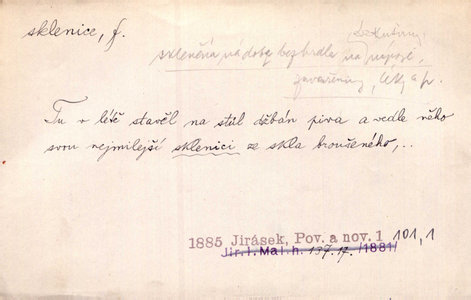 sklenice, f.
tekutiny,
skleněná nádoba bez hrdla na nápoje,
zavařeniny, léky a p.
Tu v létě stavěl na stůl džbán piva a vedle něho
svou nejmilejší sklenici ze skla broušeného,..
1885 Jirásek, Pov. a nov. 1 101,1
Jir.I.Mal.h. 137.17. /1881/